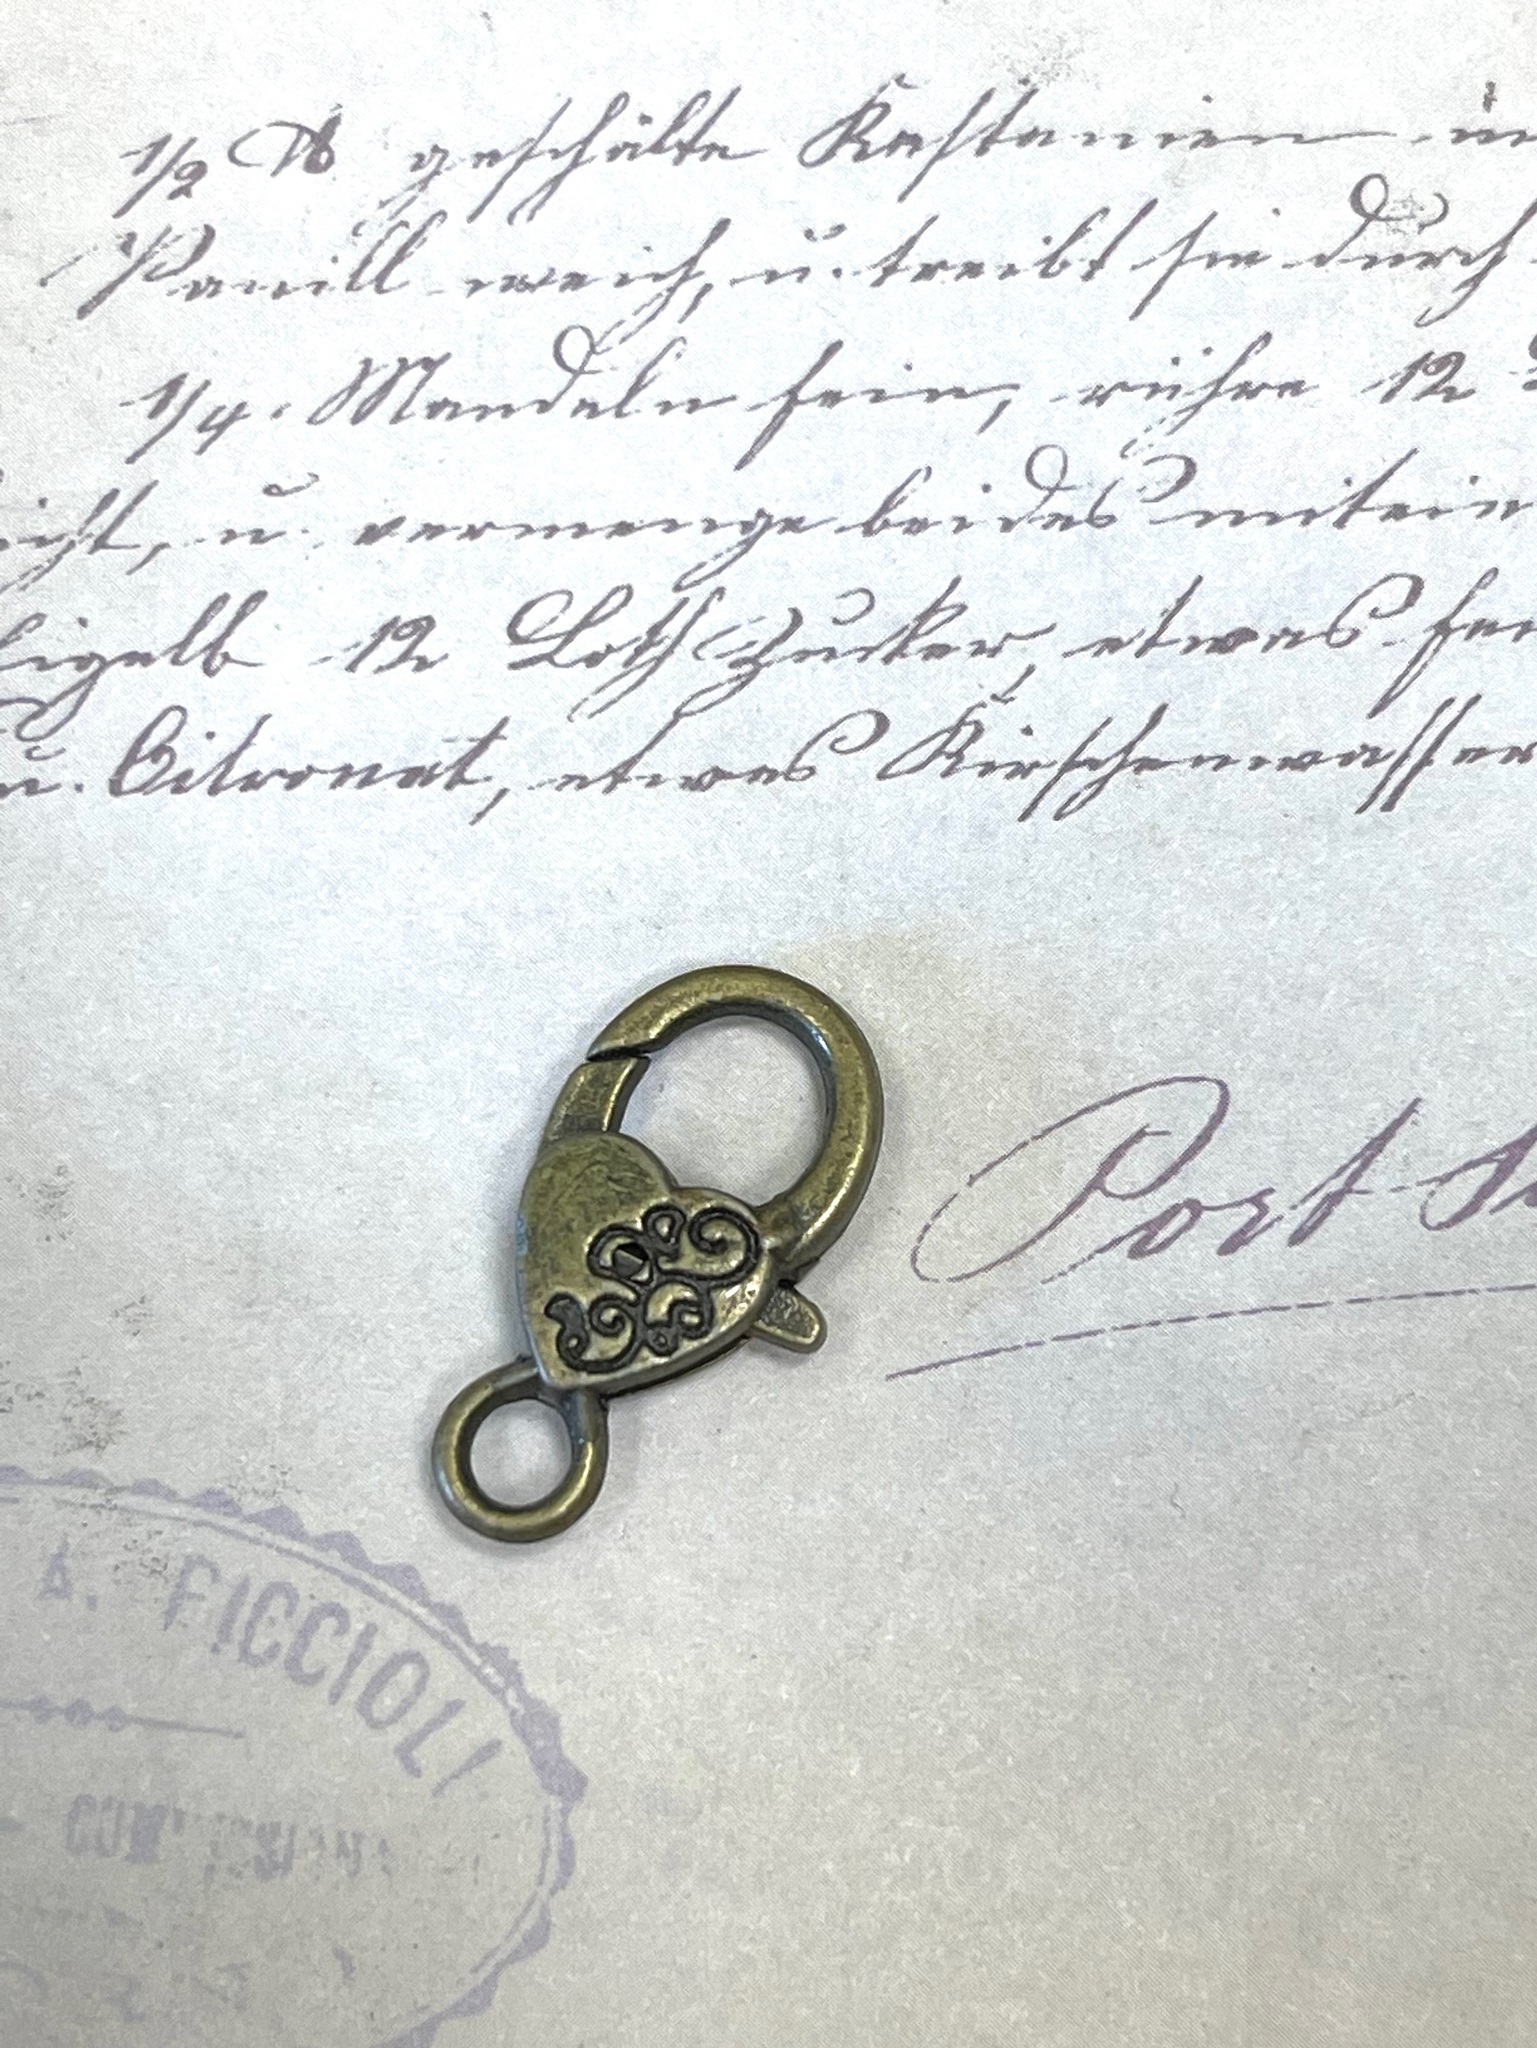 1/2 ℔ geschälte Kastanien in
Vanill weich, u. treibt sie durch
1/4. Mandeln fein, rühre 12
icht, u. vermenge beides mitein
Eigelb 12 Loth Zucker, etwas fei
u. Citronat, etwas Kirschenwasser
Post
A. FICCIOLI